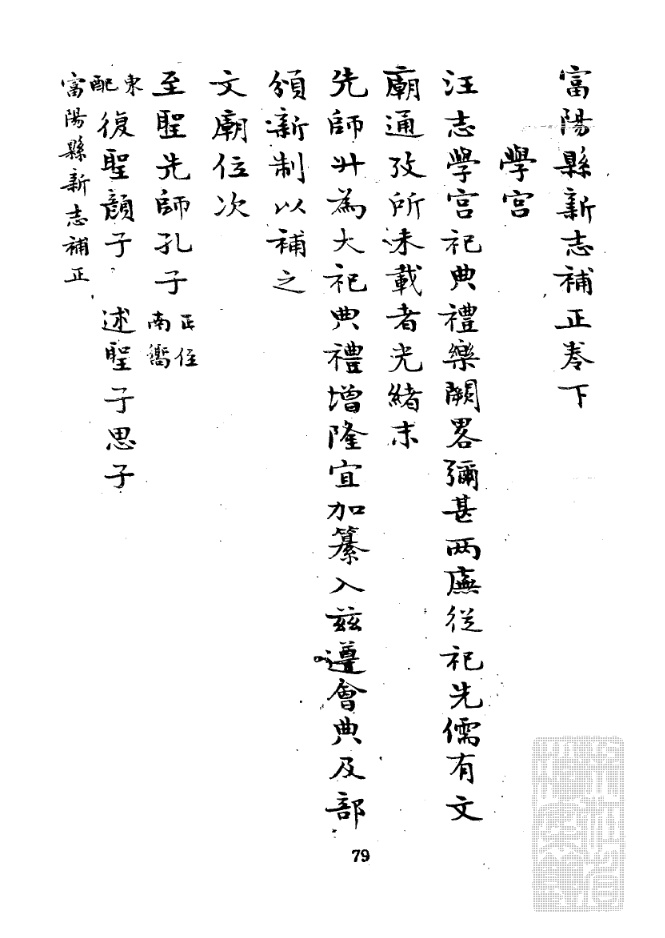 富陽縣新志補正卷下
學宮
汪志學宮祀典禮樂闕畧彌甚兩廡從祀先儒有文
廟通攷所未載者光緒末
先師升為大祀典禮增隆宜加纂入茲遵會典及部
頒新制以補之
文廟位次
至聖先師孔子 正位南嚮
東配 復聖顏子 述聖子思子
富陽縣新志補正
79